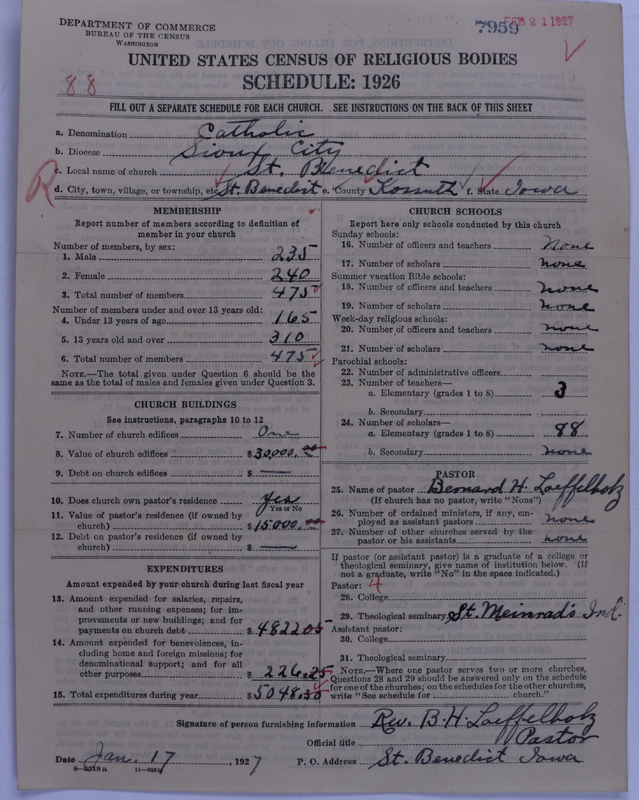 DEPARTMENT OF COMMERCE
BUREAU OF THE CENSUS
WASHINGTON
7959
FEB 21 1927
UNITED STATES CENSUS OF RELIGIOUS BODIES
SCHEDULE: 1926
88
FILL OUT A SEPARATE SCHEDULE FOR EACH CHURCH. SEE INSTRUCTIONS ON THE BACK OF THIS SHEET
a. Denomination Catholic
b. Diocese Sioux City
c. Local name of church St. Benedict
R
d. City, town, village, or township, etc. St. Benedict e. County Kossuth f. State Iowa
MEMBERSHIP
Report number of members according to definition of
member in your church
Number of members, by sex:
1. Male 235
2. Female 240
3. Total number of members 475
Number of members under and over 13 years old:
4. Under 13 years of age 165
5. 13 years old and over 310
6. Total number of members 475
NOTE.—The total given under Question 6 should be
the same as the total of males and females given under Question 3.
CHURCH BUILDINGS
See instructions, paragraphs 10 to 12
7. Number of church edifices One
8. Value of church edifices $30,000.00
9. Debt on church edifices $ —
10. Does church own pastor's residence yes
Yes or No
11. Value of pastor's residence (if owned by
church) $15000.00
12. Debt on pastor's residence (if owned by
church) $ —
EXPENDITURES
Amount expended by your church during last fiscal year
13. Amount expended for salaries, repairs,
and other running expenses; for im-
provements or new buildings; and for
payments on church debt $ 4822.05
14. Amount expended for benevolences, in-
cluding home and foreign missions; for
denominational support; and for all
other purposes $ 226.25
15. Total expenditures during year $ 5048.30
CHURCH SCHOOLS
Report here only schools conducted by this church
Sunday schools:
16. Number of officers and teachers None
17. Number of scholars none
Summer vacation Bible schools:
18. Number of officers and teachers none
19. Number of scholars none
Week-day religious schools:
20. Number of officers and teachers none
21. Number of scholars none
Parochial schools:
22. Number of administrative officers
23. Number of teachers—
a. Elementary (grades 1 to 8) 3
b. Secondary
24. Number of scholars—
a. Elementary (grades 1 to 8) 88
b. Secondary none
PASTOR
25. Name of pastor Bernard H. Loeffelholz
(If church has no pastor, write "None")
26. Number of ordained ministers, if any, em-
ployed as assistant pastors none
27. Number of other churches served by the
pastor or his assistants none
If pastor (or assistant pastor) is a graduate of a college or
theological seminary, give name of institution below. (If
not a graduate, write "No" in the space indicated.)
Pastor: 4
28. College
29. Theological seminary St. Meinrad's Ind.
Assistant pastor:
30. College
31. Theological seminary
NOTE.—Where one pastor serves two or more churches,
Questions 28 and 29 should be answered only on the schedule
for one of the churches; on the schedules for the other churches,
write "See schedule for church."
Signature of person furnishing information Rev. B. H. Loeffelholz
Official title Pastor
Date Jan. 17, 1927 P. O. Address St. Benedict Iowa